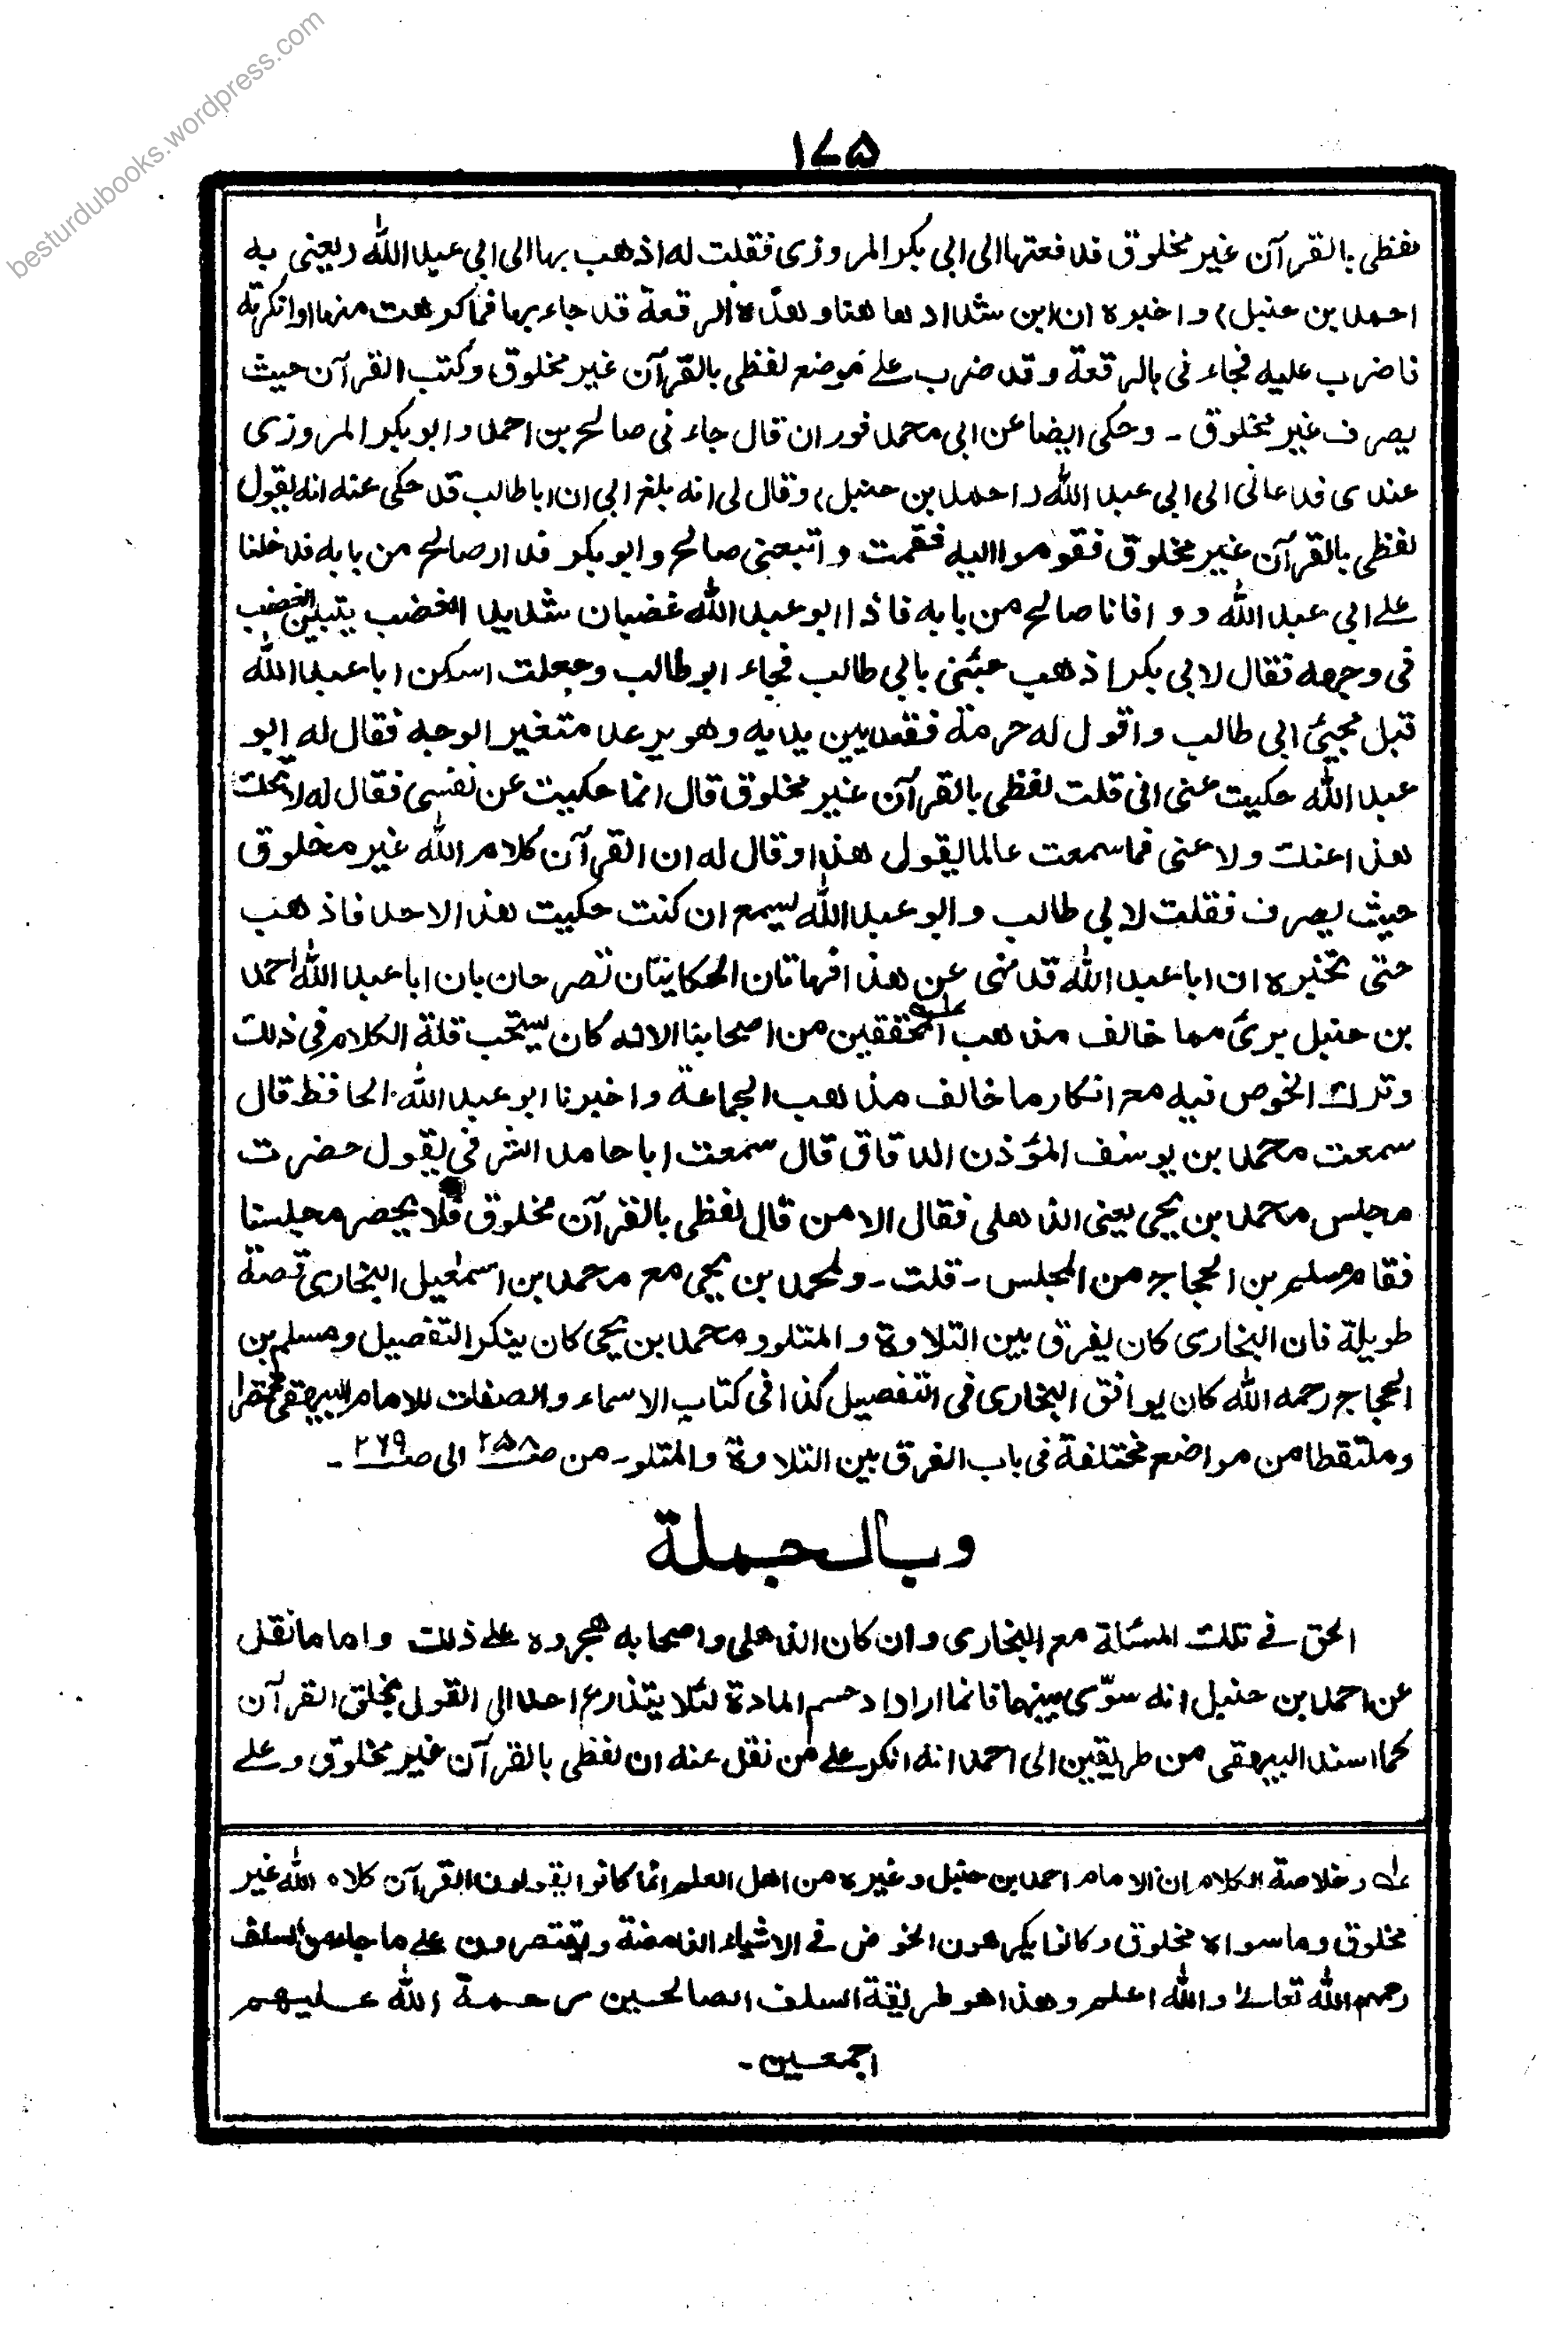 besturdubooks.wordpress.com
۱۷۵
لفظی بالقرآن غیر مخلوق فدفعتها الی ابی بکر المروزی فقلت له اذهب بها الی ابی عبد الله (یعنی به
احمد بن حنبل) واخبره ان ابن شداد ها هنا وهذه الرقعة قد جاء بها فما کرهت منها او انکرته
فاضرب علیه فجاءنی بالرقعة وقد ضرب علے موضع لفظی بالقرآن غیر مخلوق وکتب القرآن حیث
یصرف غیر مخلوق - وحکی ایضا عن ابی محمد فوران قال جاءنی صالح بن احمد وابو بکر المروزی
عندی فدعانی الی ابی عبد الله (احمد بن حنبل) وقال لی انه بلغ ابی ان ابا طالب قد حکی عنه انه یقول
لفظی بالقرآن غیر مخلوق فقوموا الیه فقمت واتبعنی صالح وابو بکر فدار صالح من بابه فدخلنا
علے ابی عبد الله ووافانا صالح من بابه فاذا ابو عبد الله غضبان شدید الغضب یتبین الغضب
فی وجهه فقال لابی بکر اذهب جئنی بابی طالب فجاء ابو طالب وجعلت اسکن ابا عبد الله
قبل مجیئ ابی طالب واقول له حرمة فقعد بین یدیه وهو یرعد متغیر الوجه فقال له ابو
عبد الله حکیت عنی انی قلت لفظی بالقرآن غیر مخلوق قال انما حکیت عن نفسی فقال له لا تحک
هذا عنک ولا عنی فما سمعت عالما یقول هذا وقال له ان القرآن کلام الله غیر مخلوق
حیث یصرف فقلت لابی طالب وابو عبد الله یسمع ان کنت حکیت هذا لاحد فاذهب
حتی تخبره ان ابا عبد الله قد نهی عن هذا فهاتان الحکایتان تصرحان بان ابا عبد الله احمد
بن حنبل بریٔ مما خالف مذهب المحققین من اصحابنا الا انه کان یستحب قلة الکلام فی ذلک
وترک الخوض فیه مع انکار ما خالف مذهب الجماعة واخبرنا ابو عبد الله الحافظ قال
سمعت محمد بن یوسف المؤذن الدقاق قال سمعت ابا حامد الشرقی یقول حضرت
مجلس محمد بن یحیی یعنی الذهلی فقال الا من قال لفظی بالقرآن مخلوق فلا یحضر مجلسنا
فقام مسلم بن الحجاج من المجلس - قلت - ولمحمد بن یحیی مع محمد بن اسمٰعیل البخاری قصة
طویلة فان البخاری کان یفرق بین التلاوة والمتلو ومحمد بن یحیی کان ینکر التفصیل ومسلم بن
الحجاج رحمه الله کان یوافق البخاری فی التفصیل کذا فی کتاب الاسماء والصفات للامام البیهقی مختصرا
وملتقطا من مواضع مختلفة فی باب الفرق بین التلاوة والمتلو - من صـ۲۵۸ الی صـ۲۶۹ -
وبالجملة
الحق فے تلک المسئلة مع البخاری وان کان الذهلی واصحابه هجروه علے ذلک واما ما نقل
عن احمد بن حنبل انه سوّی بینهما فانما اراد حسم المادة لئلا یتذرع احد الی القول بخلق القرآن
کما اسند البیهقی من طریقین الی احمد انه انکر علے من نقل عنه ان لفظی بالقرآن غیر مخلوق وعلے
عـه وخلاصة الکلام ان الامام احمد بن حنبل وغیره من اهل العلم انما کانوا یقولون القرآن کلام الله غیر
مخلوق وما سواه مخلوق وکانوا یکرهون الخوض فے الاشیاء الغامضة ویقتصرون علے ما جاء من السلف
رحمهم الله تعالےٰ والله اعلم وهذا هو طریقة السلف الصالحین رحمة الله علیهم
اجمعین -